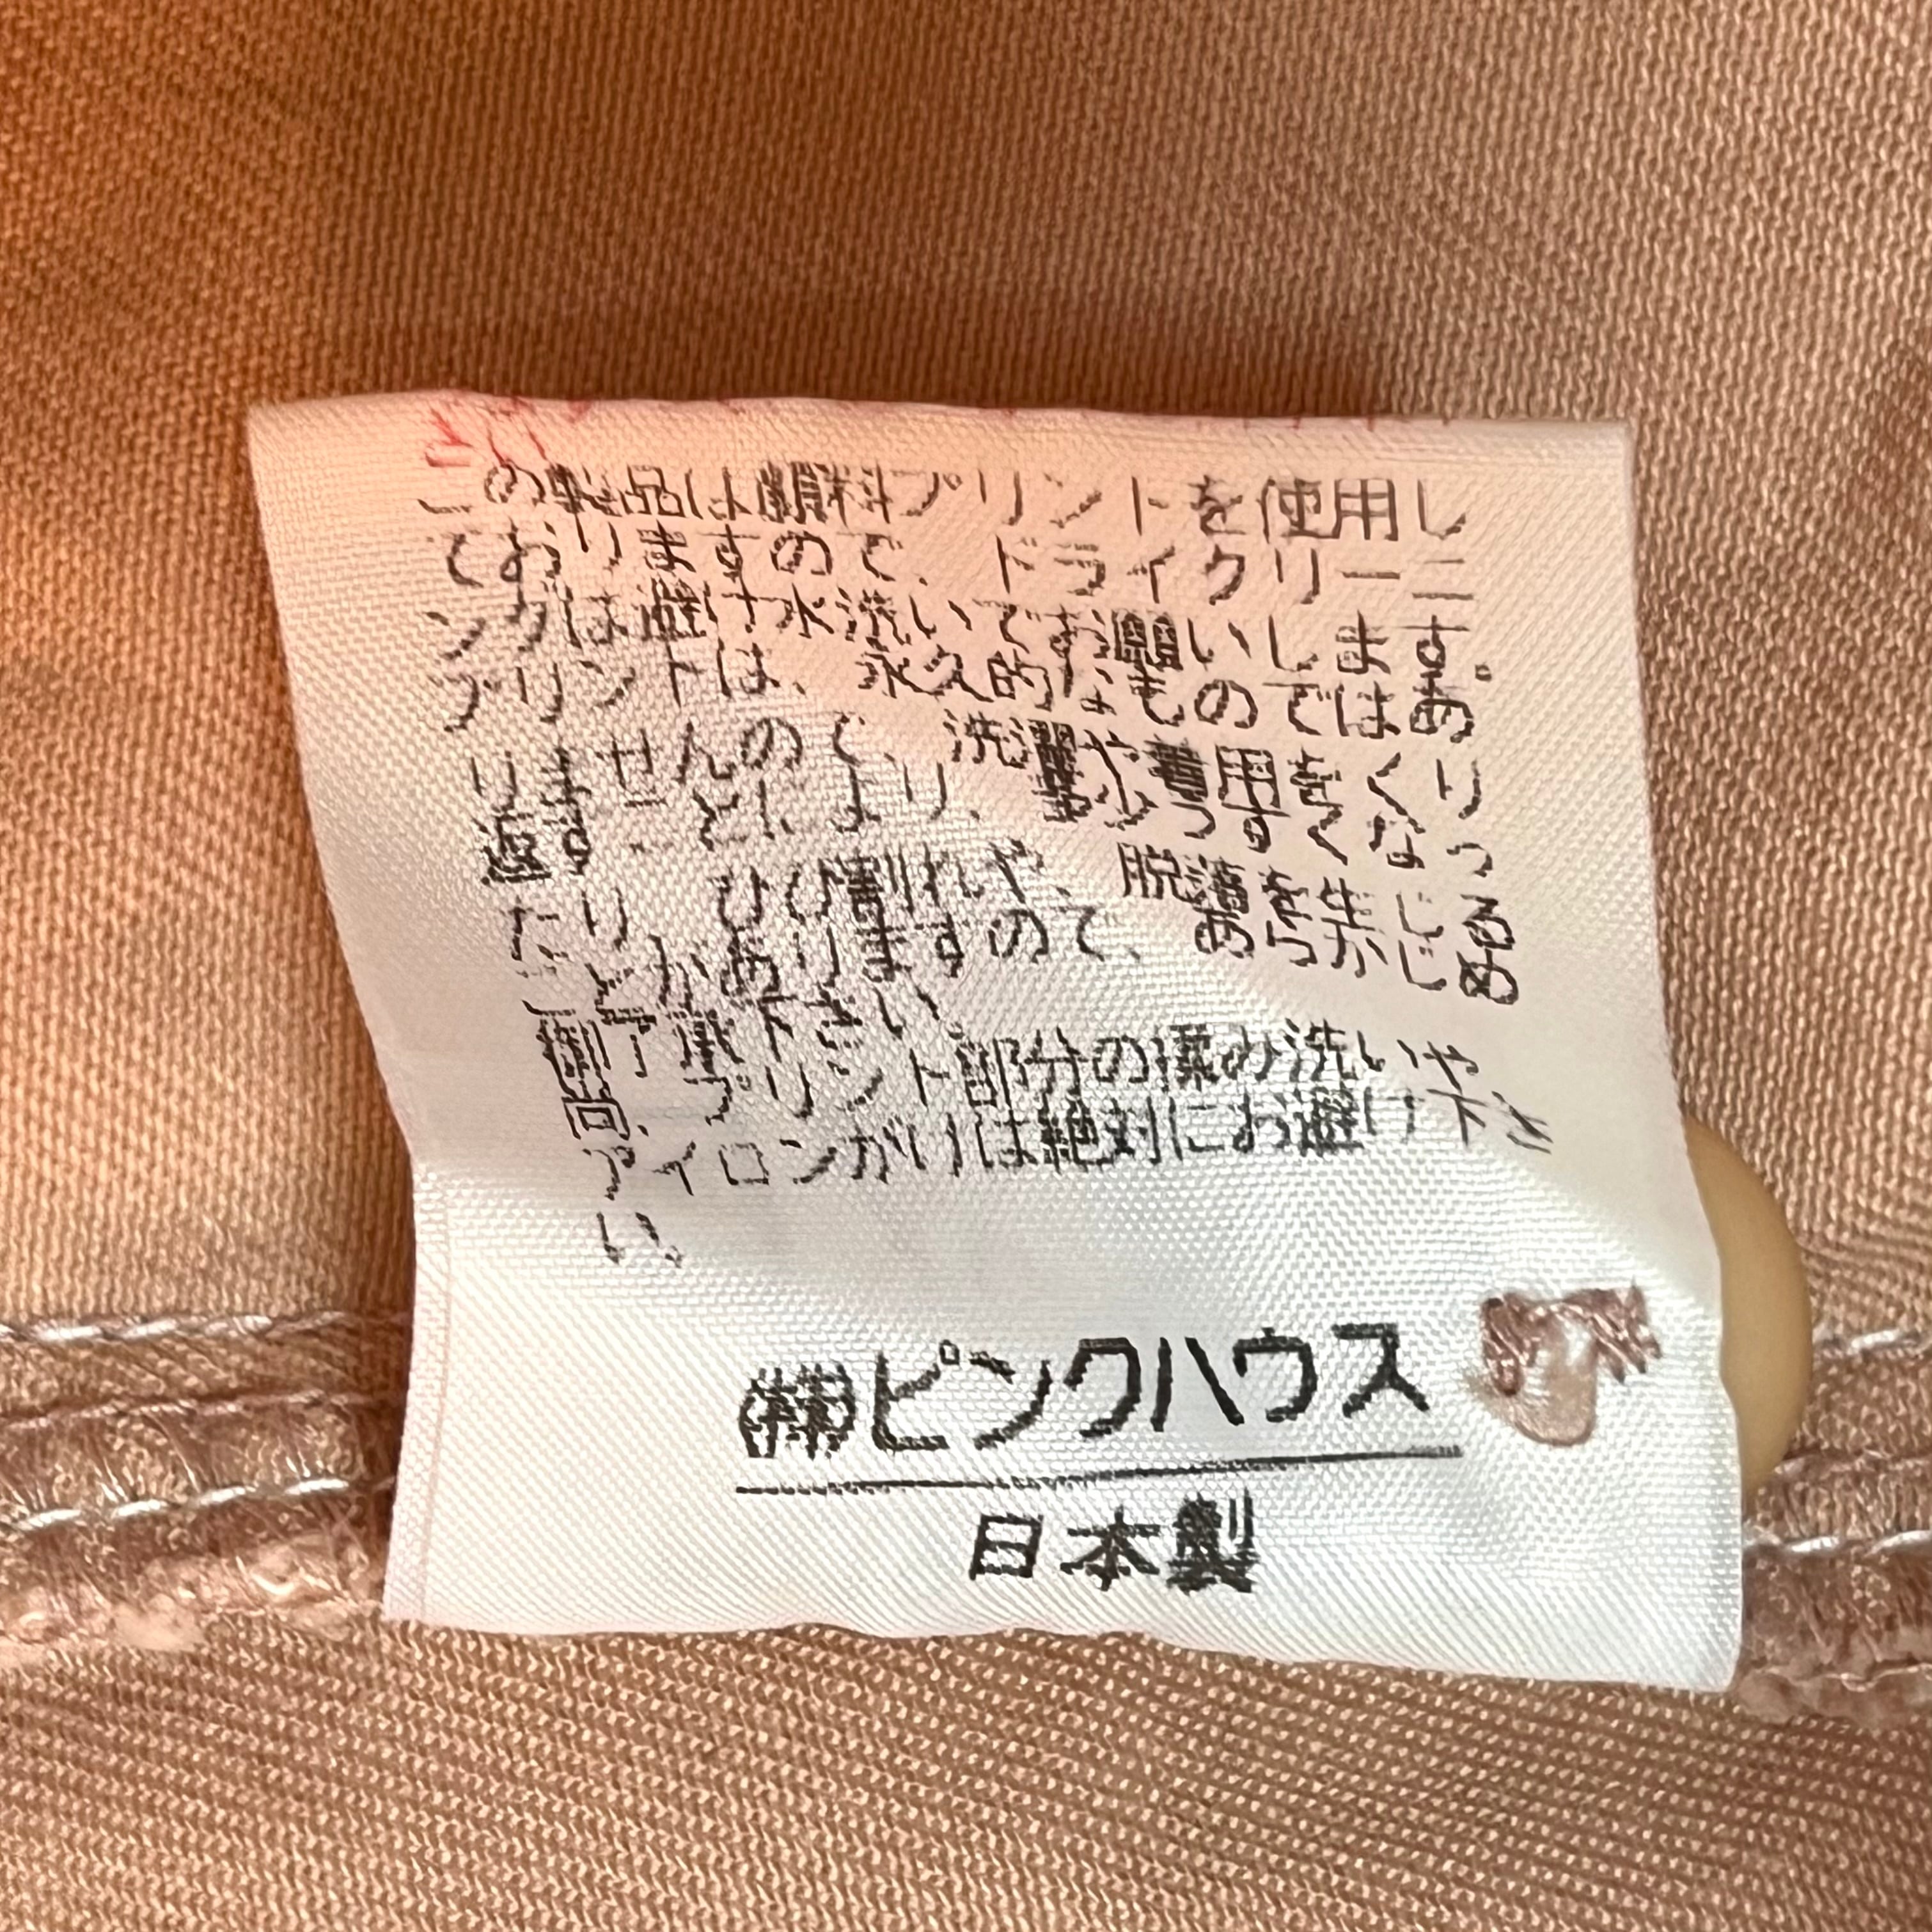 この製品は顔料プリントを使用し
ておりますので、ドライクリーニ
ングは避け水洗いでお願いします。
プリントは、永久的なものではあ
りませんので、洗濯や着用をくり
返すことにより、少
たり、ひび割れや、脱落が生じる
ことがありますので、あらかじめ
御了承下さい。
プリント部分の揉み洗いや、
アイロンがけは絶対にお避け下さ
い
㈱ピンクハウス
日本製